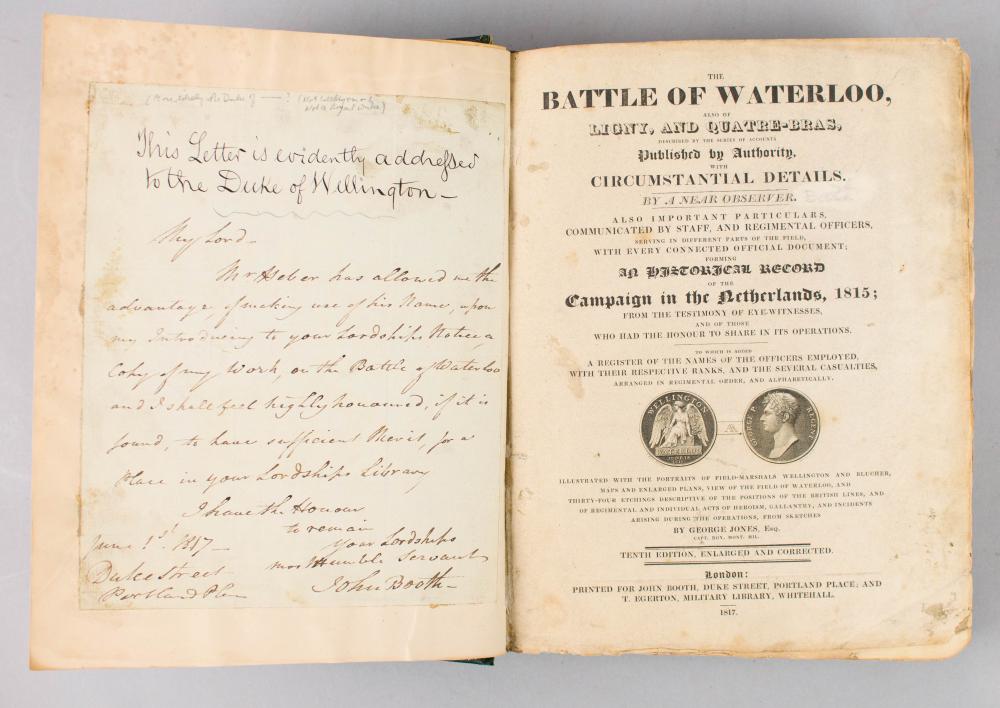 (More likely the Duke of —— ? (Not Wellington or
Not a Royal Duke)
This Letter is evidently addressed
to the Duke of Wellington —
My Lord —
Mr Heber has allowed me the
advantage, of making use of his Name, upon
my Introducing to your Lordships Notice, a
Copy of my Work, on the Battle of Waterloo
and I shall feel highly honoured, if it is
found, to have sufficient Merit, for a
Place in your Lordships Library
I have the Honour
to remain
Your Lordships
most Humble Servant
John Booth —
June 1st. 1817 —
Duke Street
Portland Place
THE
BATTLE OF WATERLOO,
ALSO OF
LIGNY, AND QUATRE-BRAS,
DESCRIBED BY THE SERIES OF ACCOUNTS
Published by Authority,
WITH
CIRCUMSTANTIAL DETAILS.
BY A NEAR OBSERVER.
ALSO IMPORTANT PARTICULARS,
COMMUNICATED BY STAFF, AND REGIMENTAL OFFICERS,
SERVING IN DIFFERENT PARTS OF THE FIELD,
WITH EVERY CONNECTED OFFICIAL DOCUMENT;
FORMING
AN HISTORICAL RECORD
OF THE
Campaign in the Netherlands, 1815;
FROM THE TESTIMONY OF EYE-WITNESSES,
AND OF THOSE
WHO HAD THE HONOUR TO SHARE IN ITS OPERATIONS.
TO WHICH IS ADDED
A REGISTER OF THE NAMES OF THE OFFICERS EMPLOYED,
WITH THEIR RESPECTIVE RANKS, AND THE SEVERAL CASUALTIES,
ARRANGED IN REGIMENTAL ORDER, AND ALPHABETICALLY.
WELLINGTON
WATERLOO
JUNE 18
1815
GEORGE P. REGENT
ILLUSTRATED WITH THE PORTRAITS OF FIELD-MARSHALS WELLINGTON AND BLUCHER,
MAPS AND ENLARGED PLANS, VIEW OF THE FIELD OF WATERLOO, AND
THIRTY-FOUR ETCHINGS DESCRIPTIVE OF THE POSITIONS OF THE BRITISH LINES, AND
OF REGIMENTAL AND INDIVIDUAL ACTS OF HEROISM, GALLANTRY, AND INCIDENTS
ARISING DURING THE OPERATIONS, FROM SKETCHES
BY GEORGE JONES, Esq.
CAPT. ROY. MONT. MIL.
TENTH EDITION, ENLARGED AND CORRECTED.
London:
PRINTED FOR JOHN BOOTH, DUKE STREET, PORTLAND PLACE; AND
T. EGERTON, MILITARY LIBRARY, WHITEHALL.
1817.